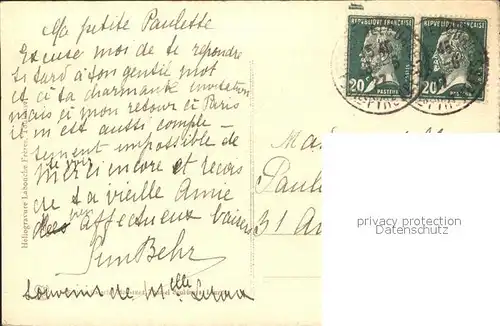 Ma petite Paulette
Excuse moi de te repondre
si tard à ton gentil mot
et à ta charmante invitation
mais à mon retour à Paris
il m est aussi comple-
tement impossible de
te voir
Merci encore et recois
de ta vieille Amie
des affectueux baisers
vers
Behr
Souvenir de Melle
Heliogravure Labouche Frères, Toulouse
REPUBLIQUE FRANÇAISE
20 PASTEUR
REPUBLIQUE FRANÇAISE
20
Paul
31 A
privacy protection
Datenschutz